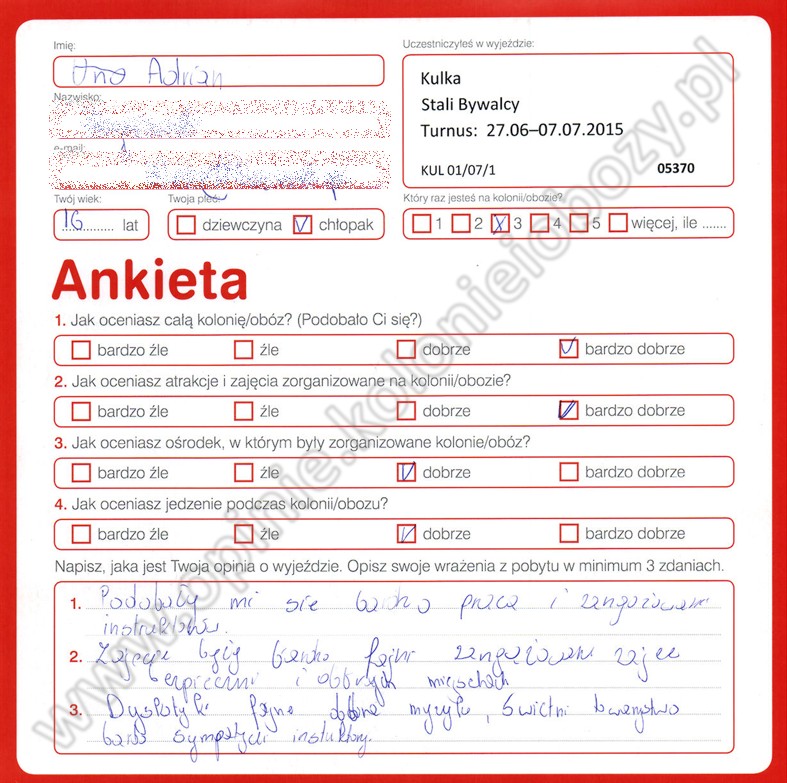 Imię:
Adrian
Nazwisko:
e-mail:
Twój wiek:
16 lat
Twoja płeć:
dziewczyna chłopak
Uczestniczyłeś w wyjeździe:
Kulka
Stali Bywalcy
Turnus: 27.06–07.07.2015
KUL 01/07/1 05370
Który raz jesteś na kolonii/obozie?
1 2 3 4 5 więcej, ile .......
Ankieta
1. Jak oceniasz całą kolonię/obóz? (Podobało Ci się?)
bardzo źle źle dobrze bardzo dobrze
2. Jak oceniasz atrakcje i zajęcia zorganizowane na kolonii/obozie?
bardzo źle źle dobrze bardzo dobrze
3. Jak oceniasz ośrodek, w którym były zorganizowane kolonie/obóz?
bardzo źle źle dobrze bardzo dobrze
4. Jak oceniasz jedzenie podczas kolonii/obozu?
bardzo źle źle dobrze bardzo dobrze
Napisz, jaka jest Twoja opinia o wyjeździe. Opisz swoje wrażenia z pobytu w minimum 3 zdaniach.
1. Podobały mi sie bardzo praca i
instruktorów.
2. bardzo fajni zajęc
i miejscach
3. Dyskotyki fajne muzyka, świetni towarzystwo
sympatyczni
www.opinie.kolonieiobozy.pl